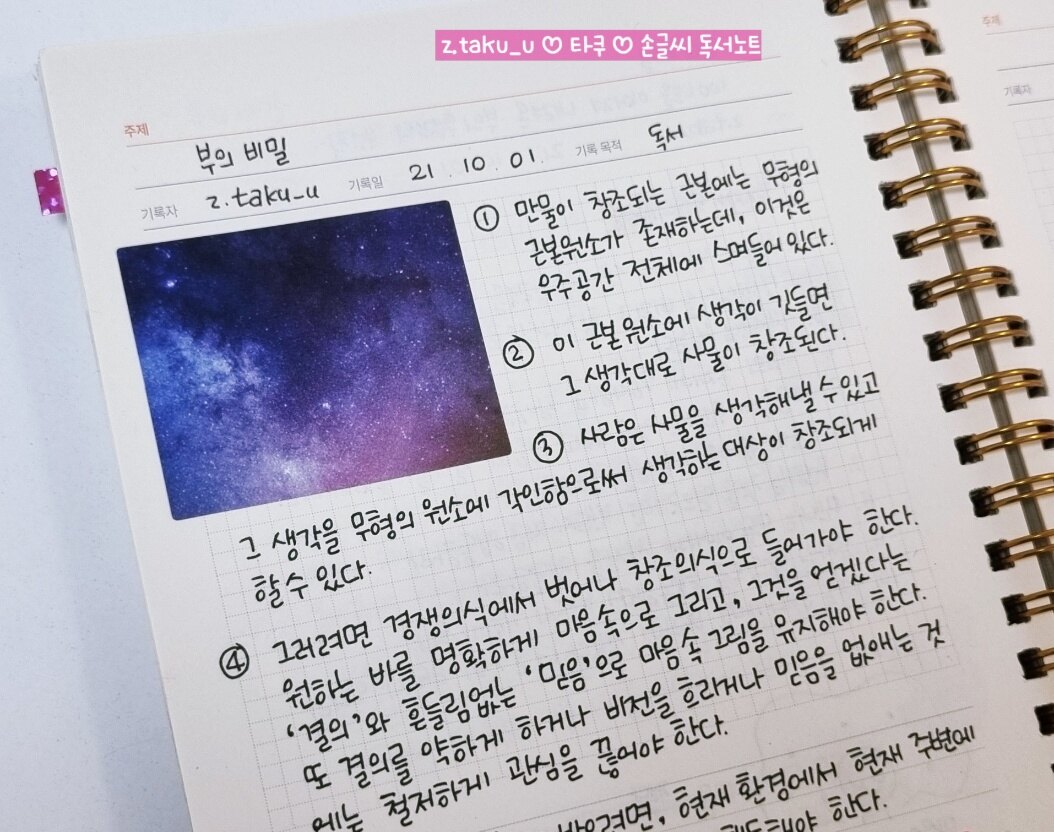 z.taku_u ♡ 타쿠 ♡ 손글씨 독서노트
주제
부의 비밀
기록자 z.taku_u 기록일 21. 10. 01. 기록 목적 독서
① 만물이 창조되는 근본에는 무형의
근본원소가 존재하는데, 이것은
우주공간 전체에 스며들어 있다.
② 이 근본 원소에 생각이 깃들면
그 생각대로 사물이 창조된다.
③ 사람은 사물을 생각해낼 수 있고
그 생각을 무형의 원소에 각인함으로써 생각하는 대상이 창조되게
할 수 있다.
④ 그러려면 경쟁의식에서 벗어나 창조의식으로 들어가야 한다.
원하는 바를 명확하게 마음속으로 그리고, 그것을 얻겠다는
'결의'와 흔들림없는 '믿음'으로 마음속 그림을 유지해야 한다.
또 결의를 약하게 하거나 비전을 흐리거나 믿음을 없애는 것
에는 철저하게 관심을 끊어야 한다.
받으려면, 현재 환경에서 현재 주변에
해야 한다.
주제
기록자